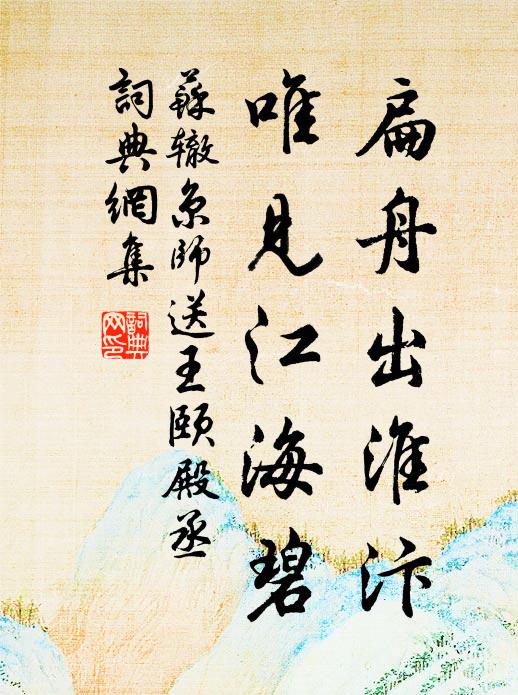 扁舟出淮汴
唯见江海碧
蘇辙京師送王頤殿丞
詞典網集
詞典网印